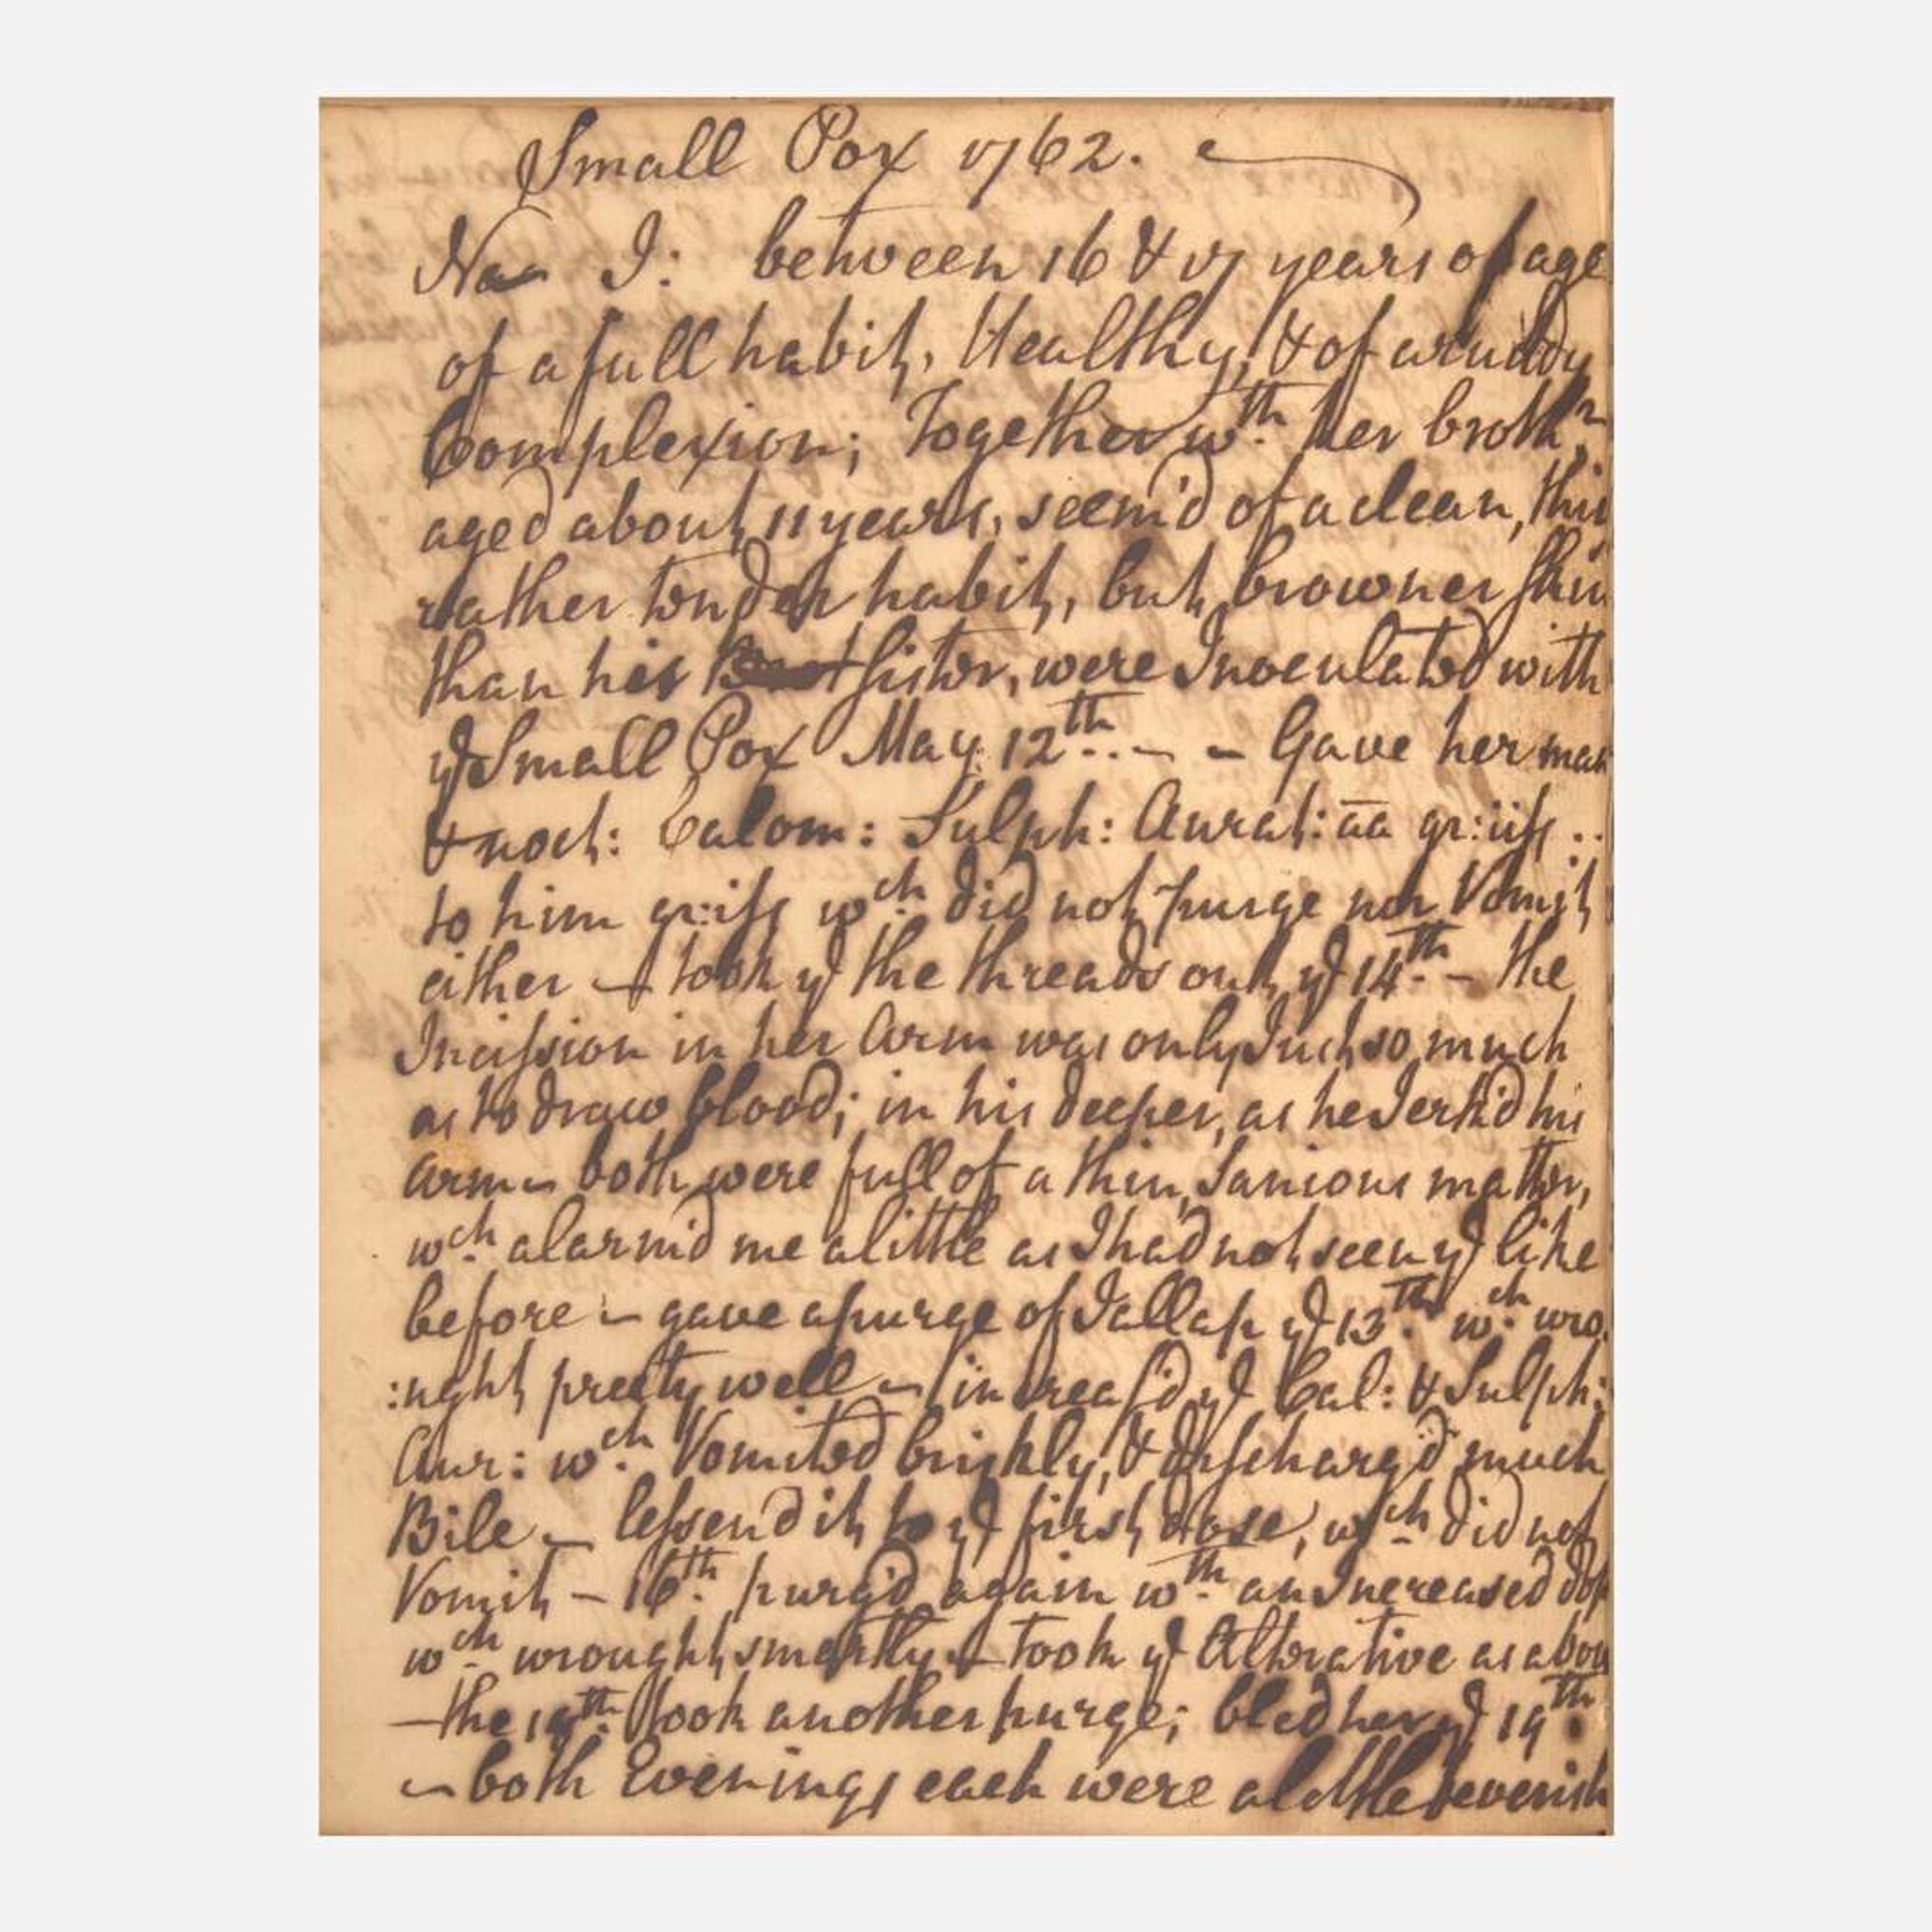 Small Pox 1762.
No I: between 16 & 17 years of age
of a full habit, Healthy, & of a ruddy
Complexion; Together wth. her brothr.
aged about 11 years, seem'd of a clean, thin
rather tender habit, but browner skin
than his sister, were Inoculated with
ye Small Pox May 12th.. - - Gave her man
& noct: Calom: Sulph: Aurat: aa gr: iiss ..
to him gr: iss wch did not purge nor Vomit
either - took ye the threads out ye 14th. - the
Incission in her Arm was only Such so much
as to draw blood; in his deeper, as he Jerk'd his
arm - both were full of a thin, Sanious matter,
wch. alarm'd me a little as I had not seen ye like
before - gave a purge of Jallap ye 13th. wch. wro
:ught pretty well - increas'd ye Cal: & Sulph:
Aur: wch. Vomited briskly, & discharg'd much
Bile - lessend it to ye first dose, wch. did not
Vomit - 16th. purg'd again wth. an Increased dos
wch. wrought smartly - took ye Alterative as abov
- the took another purge; bled her ye 19th.
- both Evenings each were a little feverish